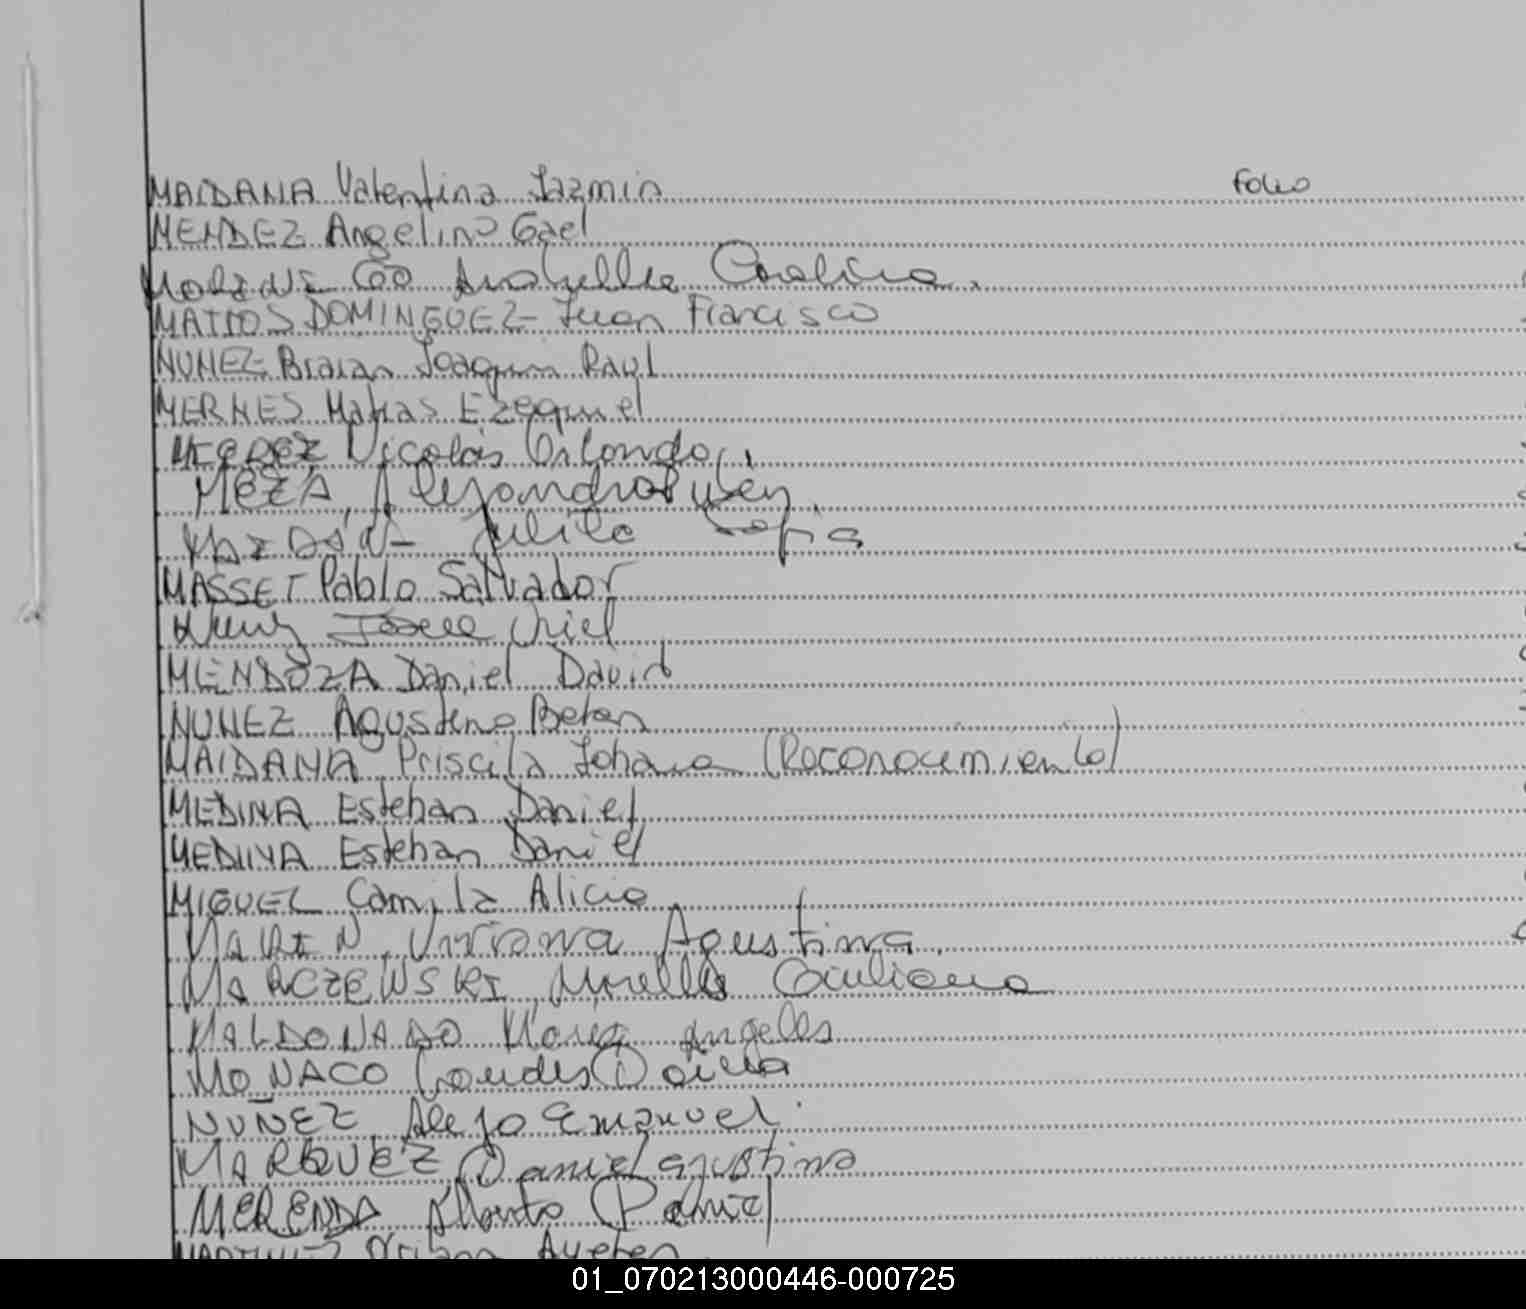 MAIDANA Valentina Jazmin Folio
MENDEZ Angelino Gael
Carolina.
MATTOS DOMINGUEZ Juan Francisco
NUNEZ Braian Joaquin Raul
MERNES Matias Ezequiel
Nicolás Orlando
MEZA, Alejandro Rubén
Julita Sofia
MASSET Pablo Salvador
Josue Uriel
MENDOZA Daniel David
NUNEZ Agustina Belen
MAIDANA Priscila Johana (Reconocimiento)
MEDINA Esteban Daniel
MEDINA Esteban Daniel
MIGUEL Camila Alicia
MARIN, Viviana Agustina.
MARCZEWSKI, Morella Giuliana
MALDONADO Maria Angeles
MONACO Lourdes Daiana
NUÑEZ, Alejo Emanuel
MARQUEZ, Daniel agustina
MERENDA Alberto
MARTINEZ Oriana Ayelen
01_070213000446-000725